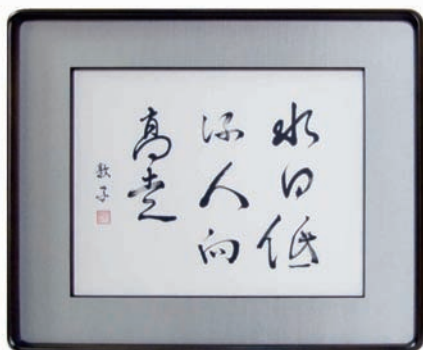 水向低
流人向
高走